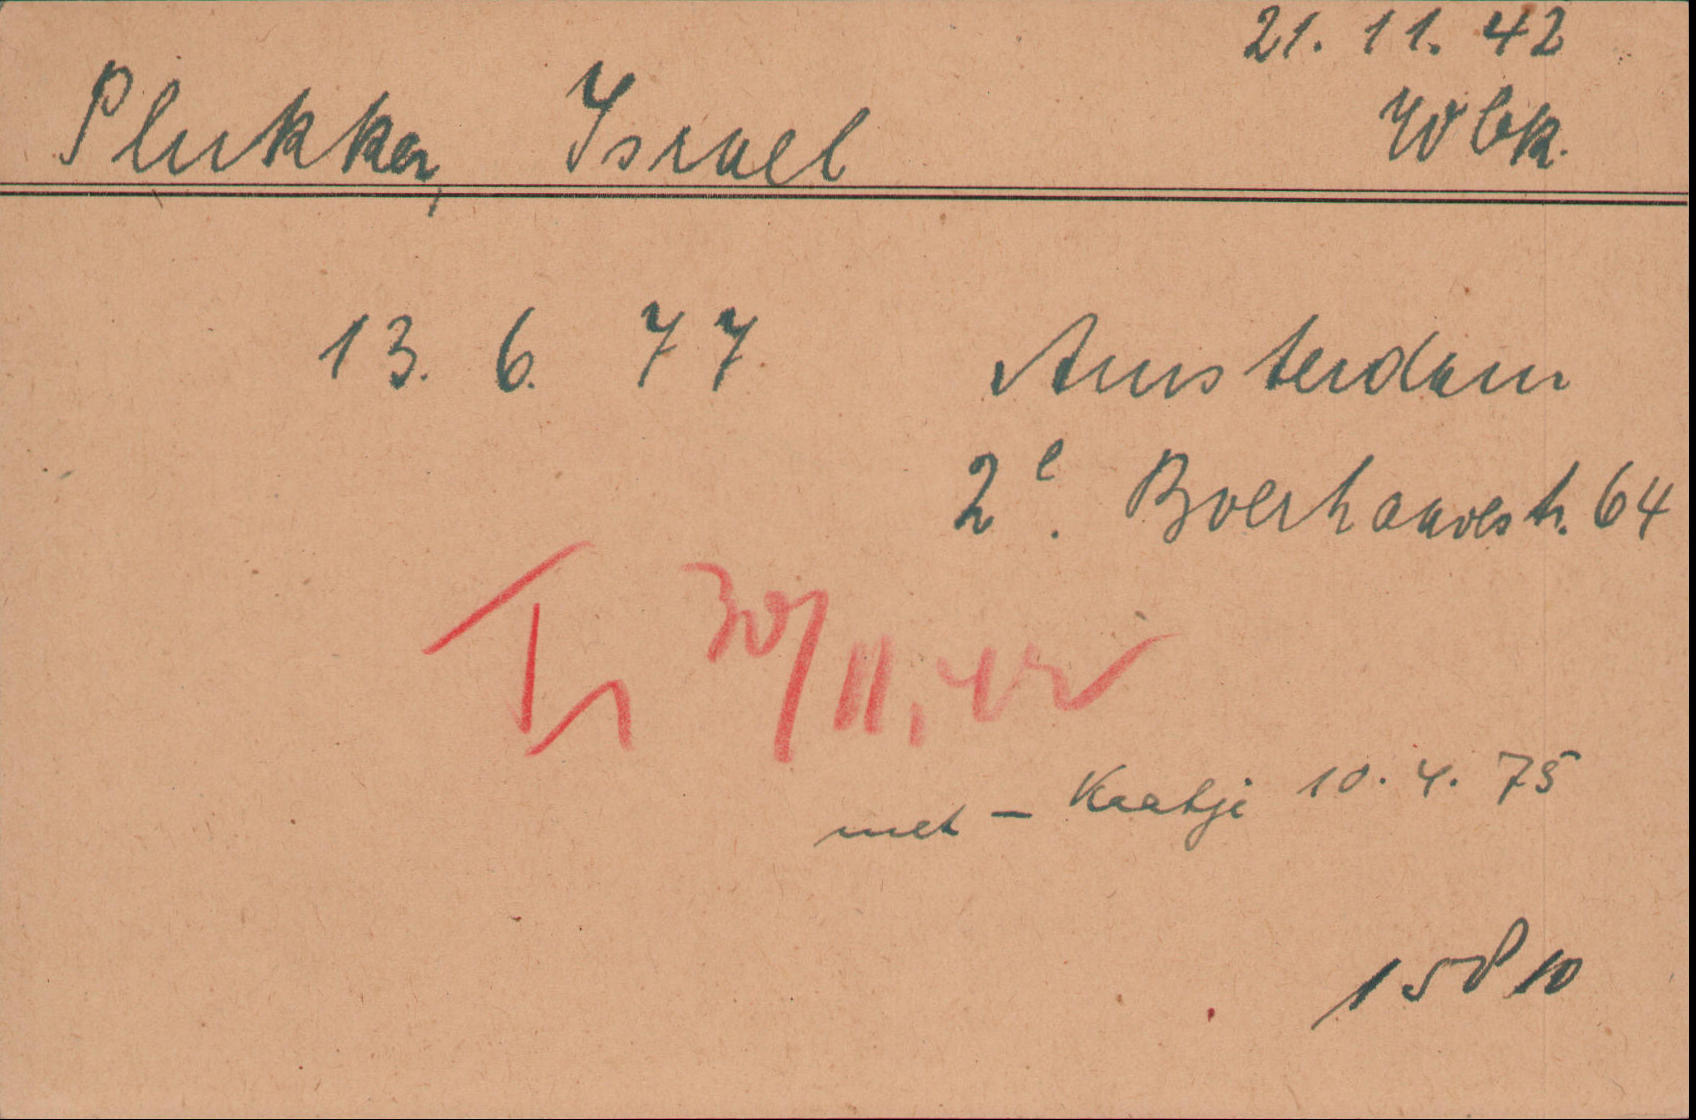 21. 11. 42
Plukker, Israel
Wbk.
13. 6. 77 Amsterdam
2e. Boerhaavestr. 64
Tr 30/11.42
met - Kaatje 10. 4. 75
15810